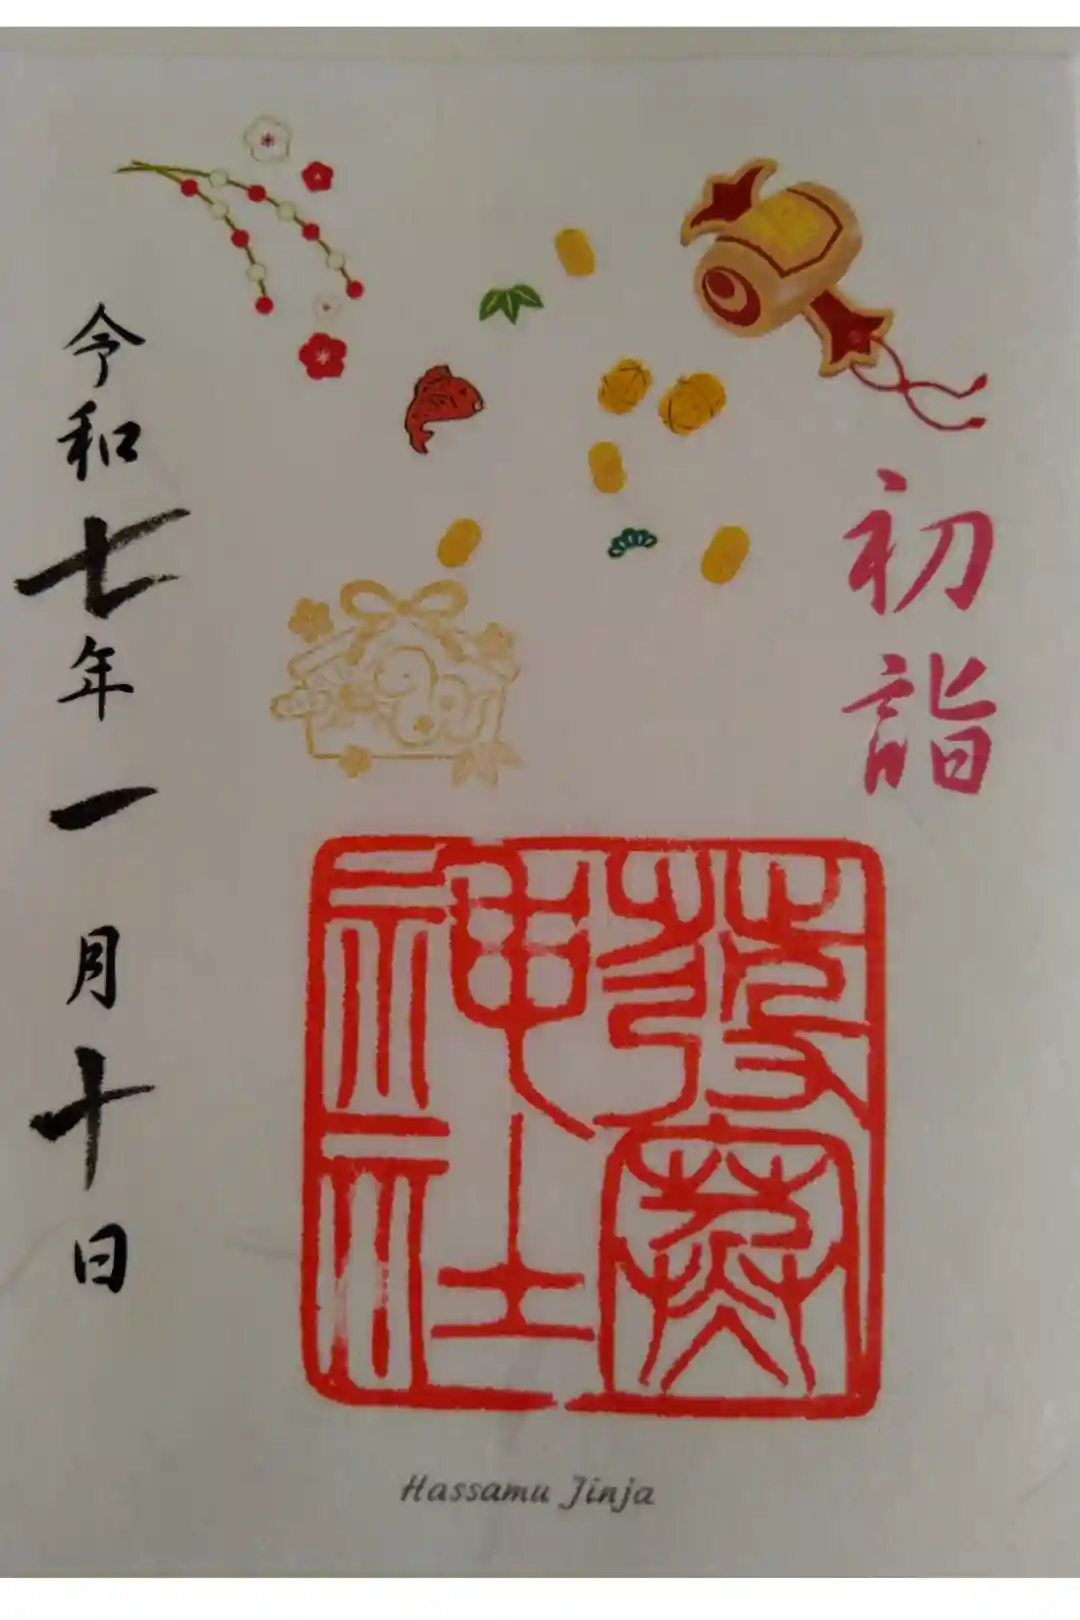 初詣
発寒神社
令和七年一月十日
Hassamu Jinja